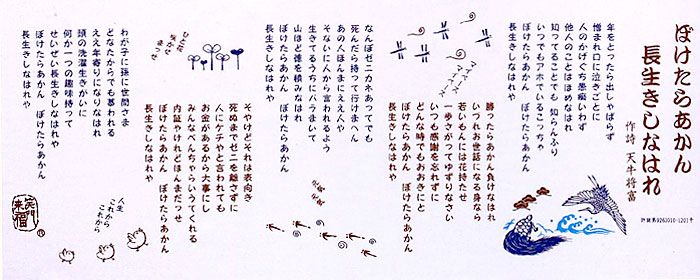 ぼけたらあかん
長生きしなはれ
作詩 天牛将富
許諾第9263010-1201号
年をとったら出しゃばらず
憎まれ口に泣きごとに
人のかげぐち愚痴いわず
他人のことはほめなはれ
知ってることでも 知らんふり
いつでもアホでいるこっちゃ
ぼけたらあかん ぼけたらあかん
長生きしなはれや
勝ったらあかん負けなはれ
いづれお世話になる身なら
若いもんには花持たせ
一歩さがってゆずりなさい
いつも感謝を忘れずに
どんな時でもおおきにと
ぼけたらあかん ぼけたらあかん
長生きしなはれや
なんぼゼニカネあってでも
死んだら持って行けまへん
あの人ほんまにええ人や
そないに人から言われるよう
生きてるうちにバラまいて
山ほど徳を積みなはれ
ぼけたらあかん ぼけたらあかん
長生きしなはれや
そやけどそれは表向き
死ぬまでゼニを離さずに
人にケチやと言われても
お金があるから大事にし
みんなべんちゃらいうてくれる
内証やけれどほんまだっせ
ぼけたらあかん ぼけたらあかん
長生きしなはれや
わが子に孫に世間さま
どなたからでも慕われる
ええ年寄りになりなはれ
頭の洗濯生きがいに
何か一つの趣味持って
せいぜい長生きしなはれや
ぼけたらあかん ぼけたらあかん
長生きしなはれや
人生
これから
これから
笑門
来福